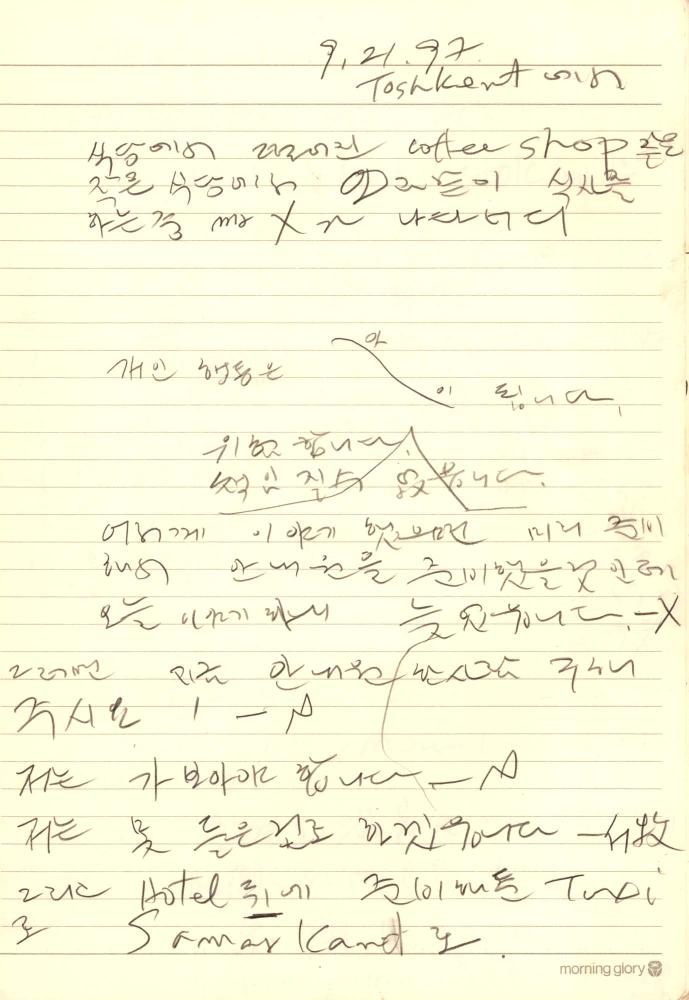 9. 21. 97
Toshkent 에서
식당에서 coffee shop 같은
작은 식당에서 식사를
하는중 Mr X가 나타나더
아
개인 행동은
이 됩니다.
위험 합니다.
책임 질수 없습니다.
어제께 이야기 했으면 미리 준비
해서 안내원을 준비했을것인데
오늘 이야기 하니 늦었습니다. –X
그러면 지금 안내원 한사람 구하여
주시요 ! – N
저는 가 보아야 합니다 – N
저는 못 들은걸로 하겠습니다 –
그리고 Hotel 뒤에 준비해둔 Taxi
로 Samarkand 로.
morning glory